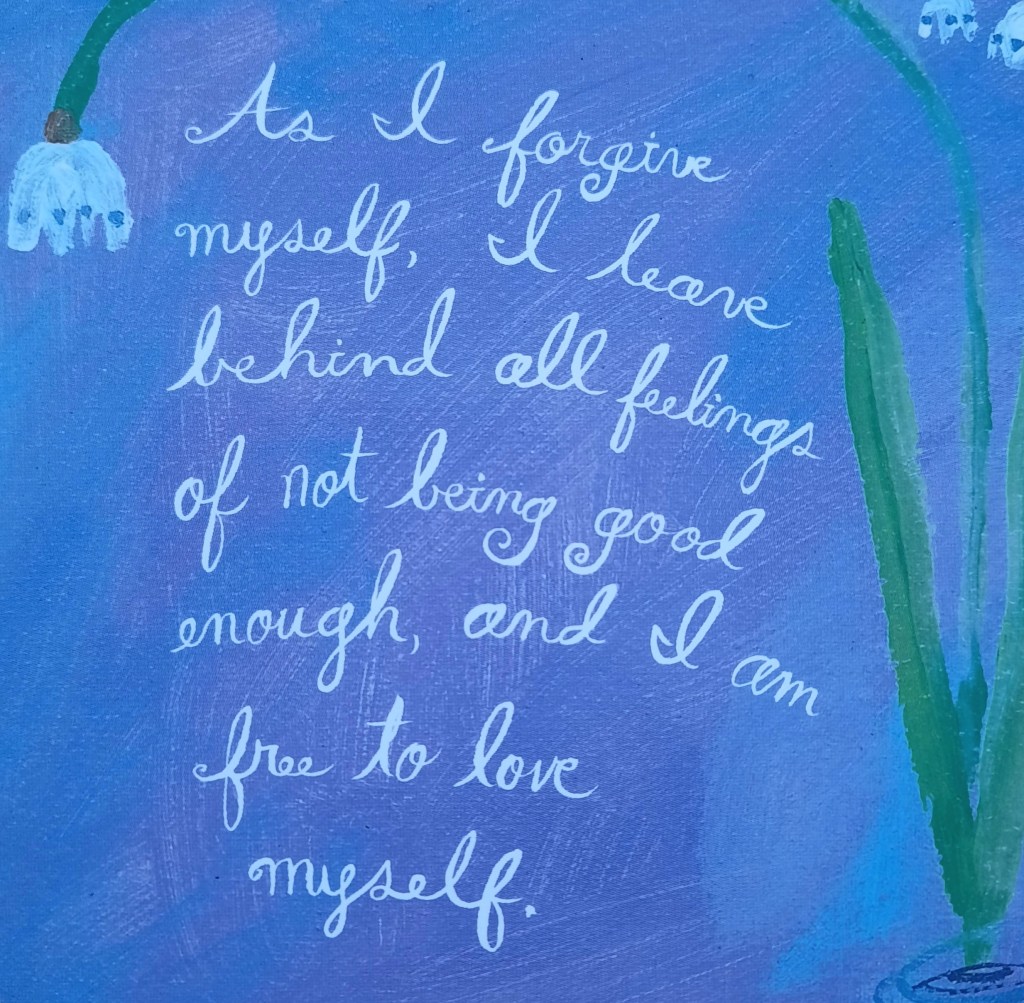 As I forgive
myself, I leave
behind all feelings
of not being good
enough, and I am
free to love
myself.